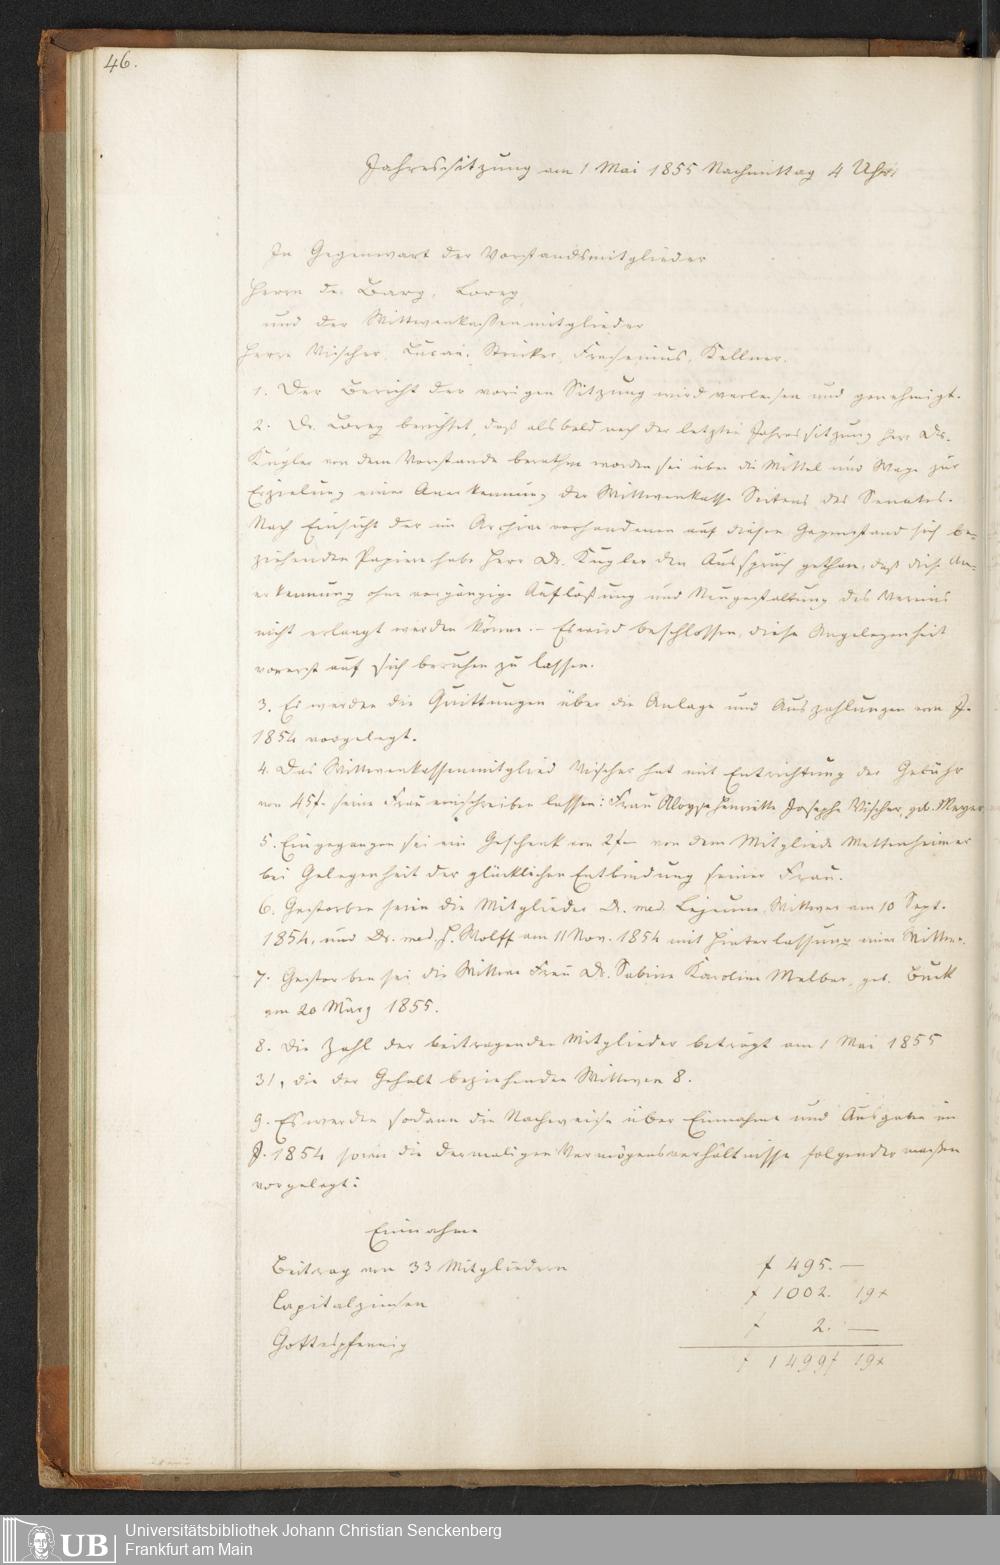 46.
Jahressitzung am 1 Mai 1855 Nachmittag 4 Uhr
In Gegenwart der Vorstandsmitglieder
Herrn Dr. Barg, Lorey
und der Wittwenkassenmitglieder
Herrn Vischer, Lucae, Stricker, Fresenius, Kellner.
1. Der Bericht der vorigen Sitzung wird verlesen und genehmigt.
2. Dr. Lorey berichtet, daß alsbald nach der letzten Jahressitzung Herr Dr.
Kugler von dem Vorstande berathen worden sei über die Mittel und Wege zur
Erzielung einer Anerkennung der Wittwenkasse Seitens des Senates.
Nach Einsicht der im Archive vorhandenen auf diesen Gegenstand sich be-
ziehenden Papiere habe Herr Dr. Kugler den Ausspruch gethan, daß diese An-
erkennung ohne vorgängige Auflößung und Neugestaltung des Vereins
nicht erlangt werden könne. – Es wird beschlossen, diese Angelegenheit
vorerst auf sich beruhen zu lassen.
3. Es werden die Quittungen über die Anlage und Auszahlungen vom J.
1854 vorgelegt.
4. Das Wittwenkassenmitglied Vischer hat mit Entrichtung der Gebühr
von 45 f. seine Frau einschreiben lassen: Frau Aloyse Henriette Josephe Vischer, geb. Meyer
5. Eingegangen sei ein Geschenk von 2 f – von dem Mitgliede Mettenheimer
bei Gelegenheit der glücklichen Entbindung seiner Frau.
6. Gestorben seien die Mitglieder Dr. med. Lejeune, Wittwer am 10 Sept.
1854, und Dr. med. H. Wolff am 11 Nov. 1854 mit Hinterlassung einer Wittwe.
7. Gestorben sei die Wittwe Frau Dr. Sabine Karoline Melber, geb. Buck
am 20 März 1855.
8. Die Zahl der beitragenden Mitglieder beträgt am 1 Mai 1855
31, die der Gehalt beziehenden Wittwen 8.
9. Es werden sodann die Nachweise über Einnahme und Ausgabe im
J. 1854 sowie die dermaligen Vermögensverhältnisse folgendermaßen
vorgelegt:
Einnahme
Beitrag von 33 Mitgliedern f 495. —
Capitalzinsen f 1002. 19 x
Gottespfennig f 2. —
f 1499 f 19 x
UB
Universitätsbibliothek Johann Christian Senckenberg
Frankfurt am Main